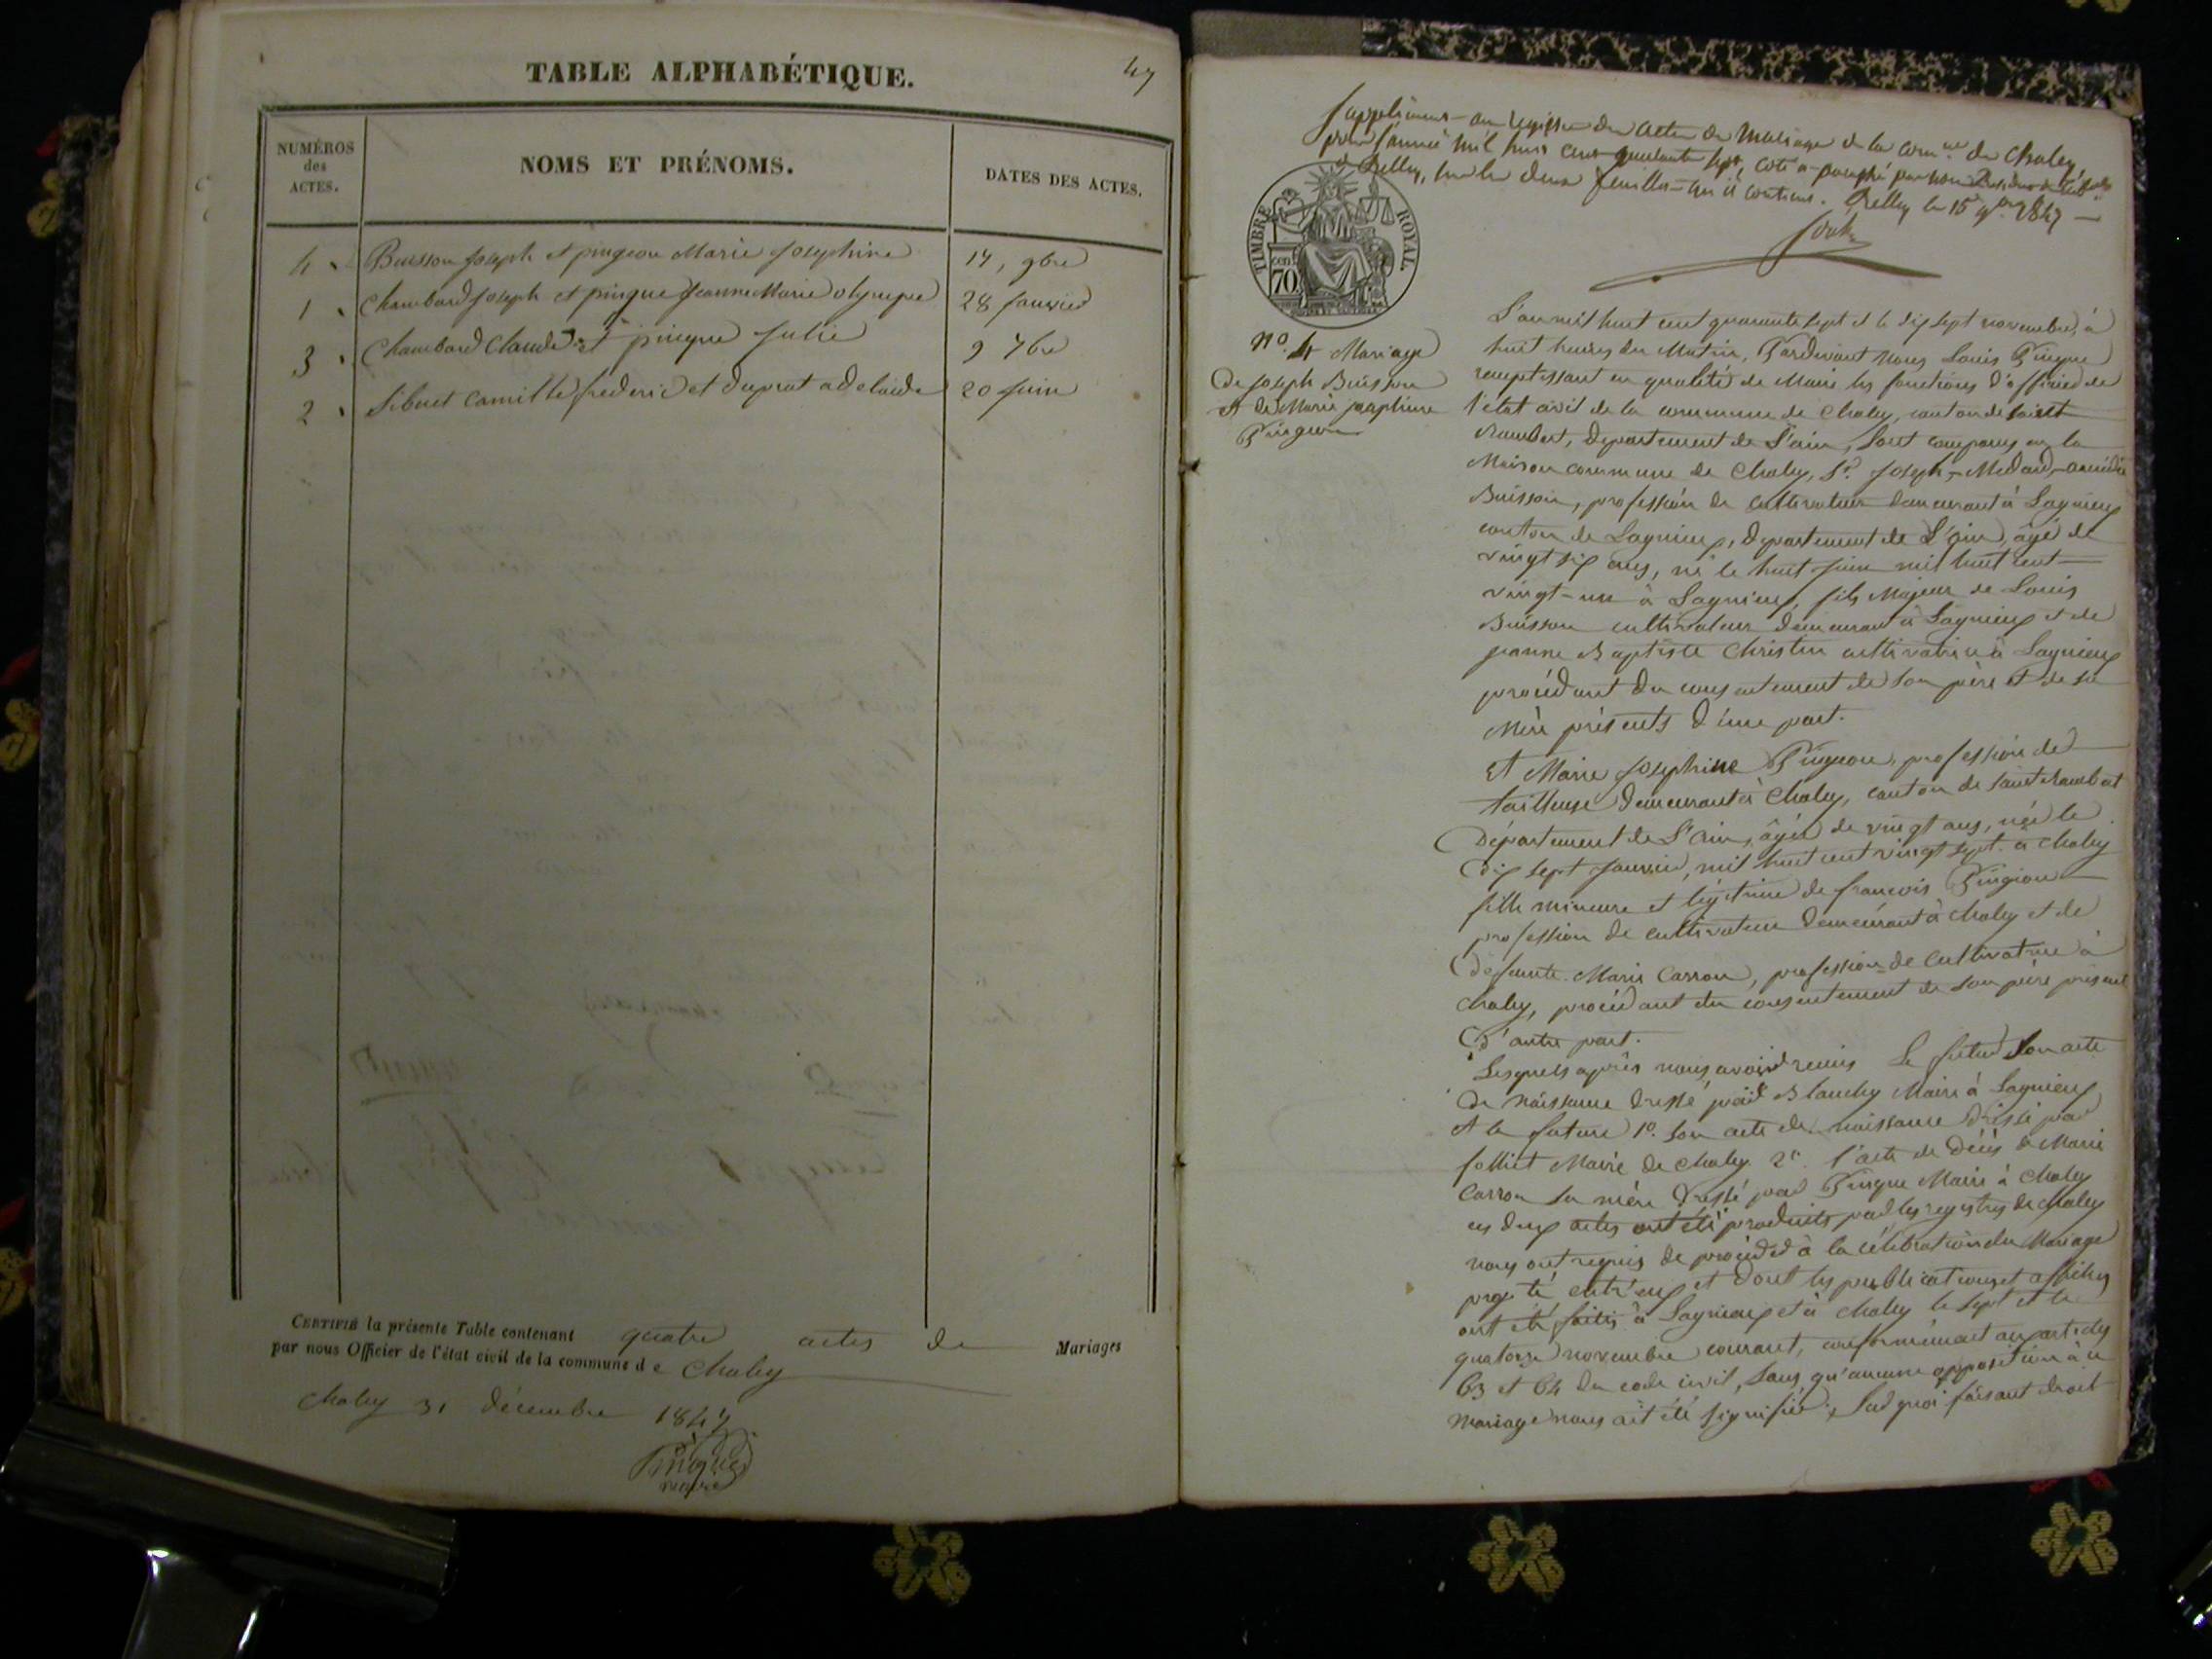 TABLE ALPHABÉTIQUE.
47
NUMÉROS
des
ACTES.
NOMS ET PRÉNOMS.
DATES DES ACTES.
4 Buisson Joseph et pingeon Marie Josephine 17, 9bre
1 Chambard Joseph et pingue Jeanne Marie olympe 28 Janvier
3 Chambard Claude et pingue Julie 9 7bre
2 Sibuet Camille frederic et duprat adelaide 20 Juin
CERTIFIÉ la présente Table contenant quatre actes de Mariages
par nous Officier de l'état civil de la commune de Chaley
Chaley 31 décembre 1847
Pingue
maire
Supplément au registre des actes de Mariage de la comne de Chaley,
pour l'année mil huit cent quarante sept, coté et paraphé par nous
à Belley, sur les deux feuilles qu'il contient. Belley le 15 9bre 1847
TIMBRE ROYAL.
cen
70
No. 4 Mariage
De Joseph Buisson
et de Marie josephine
Pingeon
L'an mil huit cent quarante sept et le dix sept novembre, à
huit heures du Matin, Pardevant nous Louis Pingue
remplissant en qualité de Maire les fonctions d'officier de
l'état civil de la commune de Chaley, canton de saint
Rambert, departement de l'ain, sont comparus en la
Maison commune de Chaley, Sr. Joseph-Medard-amédée
Buisson, profession de cultivateur demeurant à Lagnieux
canton de Lagnieux, Departement de l'ain, âgé de
vingt six ans, né le huit Juin mil huit cent
vingt-un à Lagnieux, fils Majeur de Louis
Buisson cultivateur demeurant à Lagnieux et de
jeanne Baptiste Christin cultivatrice à Lagnieux
procédant du consentement de son père et de sa
Mère présents d'une part.
Et Marie Josephine Pingeon, profession de
tailleuse demeurant à Chaley, canton de saint Rambert
Département de l'ain, âgée de vingt ans, née le
dix sept Janvier, mil huit cent vingt sept à Chaley
fille mineure et légitime de francois Pingeon
profession de cultivateur demeurant à Chaley et de
défunte Marie Carron, profession de Cultivatrice à
Chaley, procédant du consentement de son père présent
D'autre part.
Lesquels après nous avoir remis Le futur son acte
De Naissance dressé par Blanchy Maire à Lagnieux
et la future 1o. son acte de naissance dressé par
folliet Maire de Chaley 2o. l'acte de décès de Marie
Carron sa mère dressé par Pingue Maire à Chaley
ces deux actes ont été produits par les registres de Chaley
nous ont requis de procéder à la célébration du Mariage
projeté entr'eux et dont les publications et affiches
ont été faites à Lagnieux et à Chaley le sept et le
quatorze novembre courant, conformément aux articles
63 et 64 du code civil, sans qu'aucune opposition à ce
Mariage nous ait été signifiée; Sur quoi faisant droit